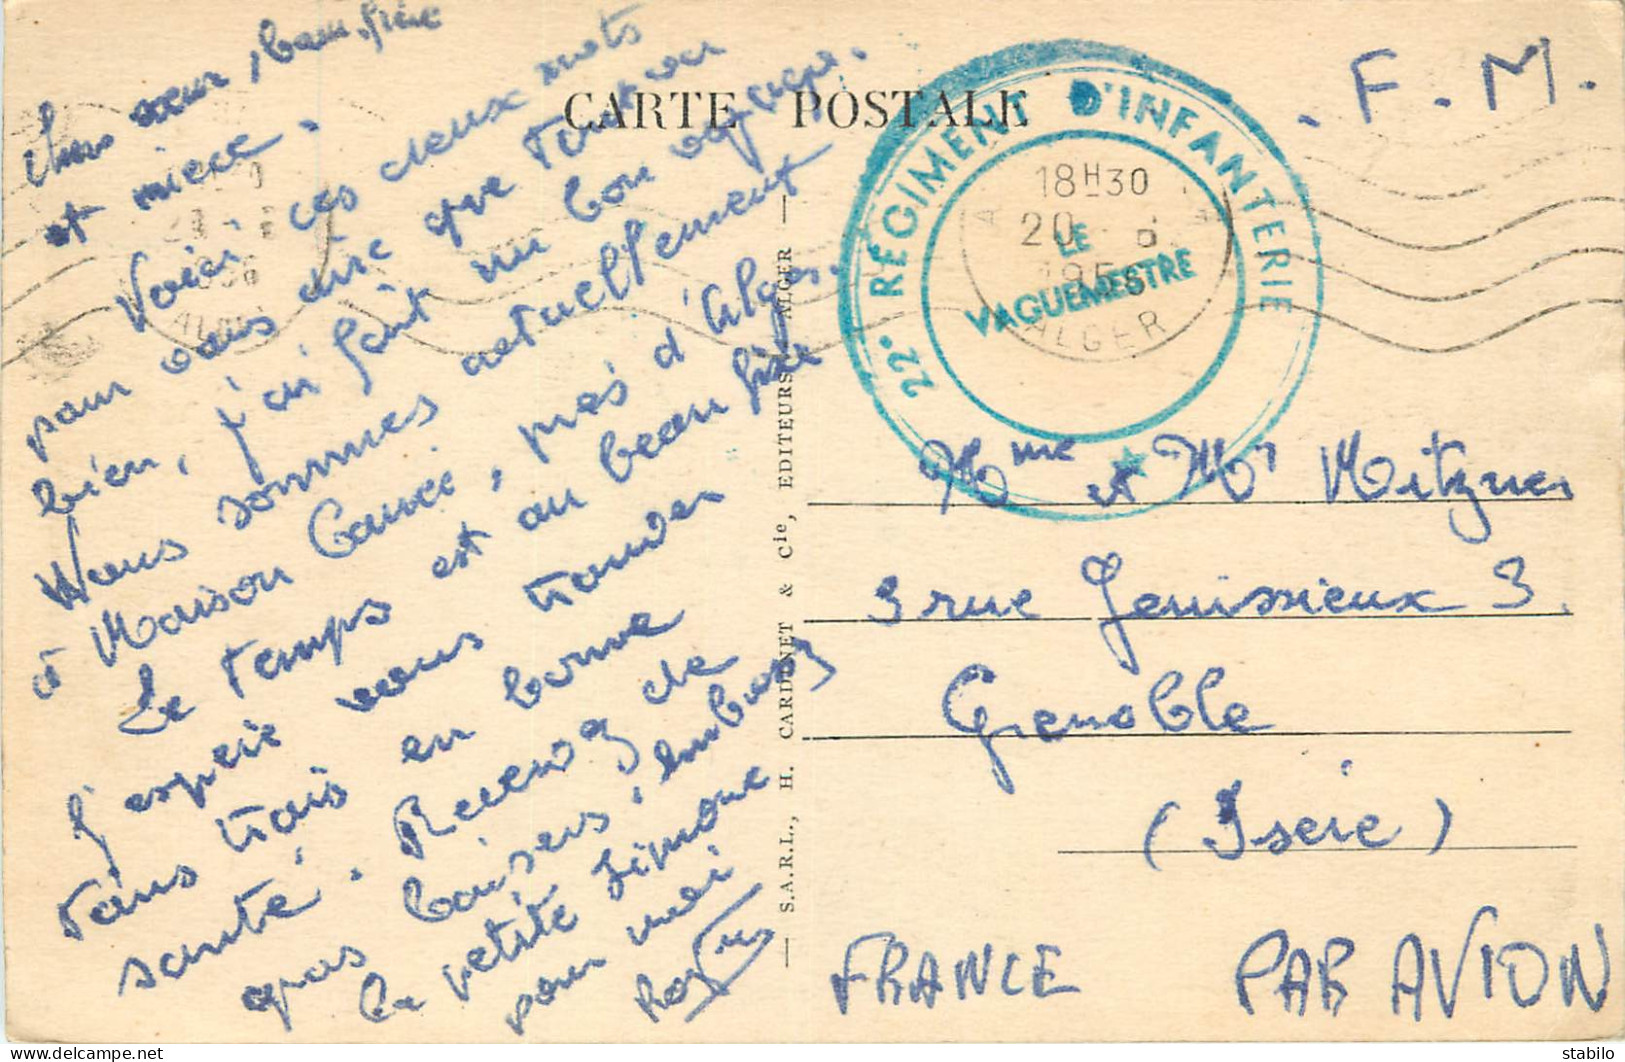 CARTE POSTALE
. F. M.
Chers sœur, beau-frère
et nièce.
Voici ces deux mots
pour vous dire que tout va
bien, j'ai fait un bon voyage.
Nous sommes actuellement
à Maison Carrée, près d'Alger.
Le temps est au beau fixe
J'espère vous trouver
tous trois en bonne
santé. Recevez de
gros baisers, embrassez
la petite Simone
pour moi
S.A.R.L., H. CARDINET & Cie, EDITEURS ALGER
22e RÉGIMENT D'INFANTERIE
LE
VAGUEMESTRE
18H30
20
195
ALGER
Mme et Mr Mitzner
3 rue Jenissieux 3.
Grenoble
(Isère)
FRANCE PAR AVION
stabilo